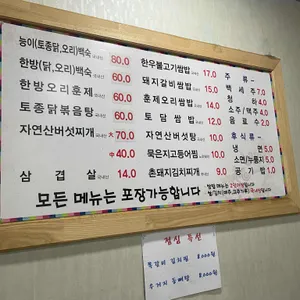 능이(토종닭,오리)백숙 80.0
한방(닭,오리)백숙 60.0
한방오리훈제 60.0
토종닭볶음탕 60.0
자연산버섯찌개 大 70.0
中 40.0
삼 겹 살 국내산 14.0
한우불고기쌈밥 17.0
돼지갈비쌈밥 15.0
훈제오리쌈밥 14.0
토 담 쌈 밥
자연산버섯탕
묵은지고등어찜
촌돼지김치찌개 9.0
주 류 -
백 세 주 7.0
청 하 4.0
소주/맥주 4.0
음 료 수 2.0
후 식 류 -
냉 면 5.0
소면/누룽지 5.0
공 기 밥 1.0
모든 메뉴는 포장가능합니다
점심 특선
8,000원
8,000원